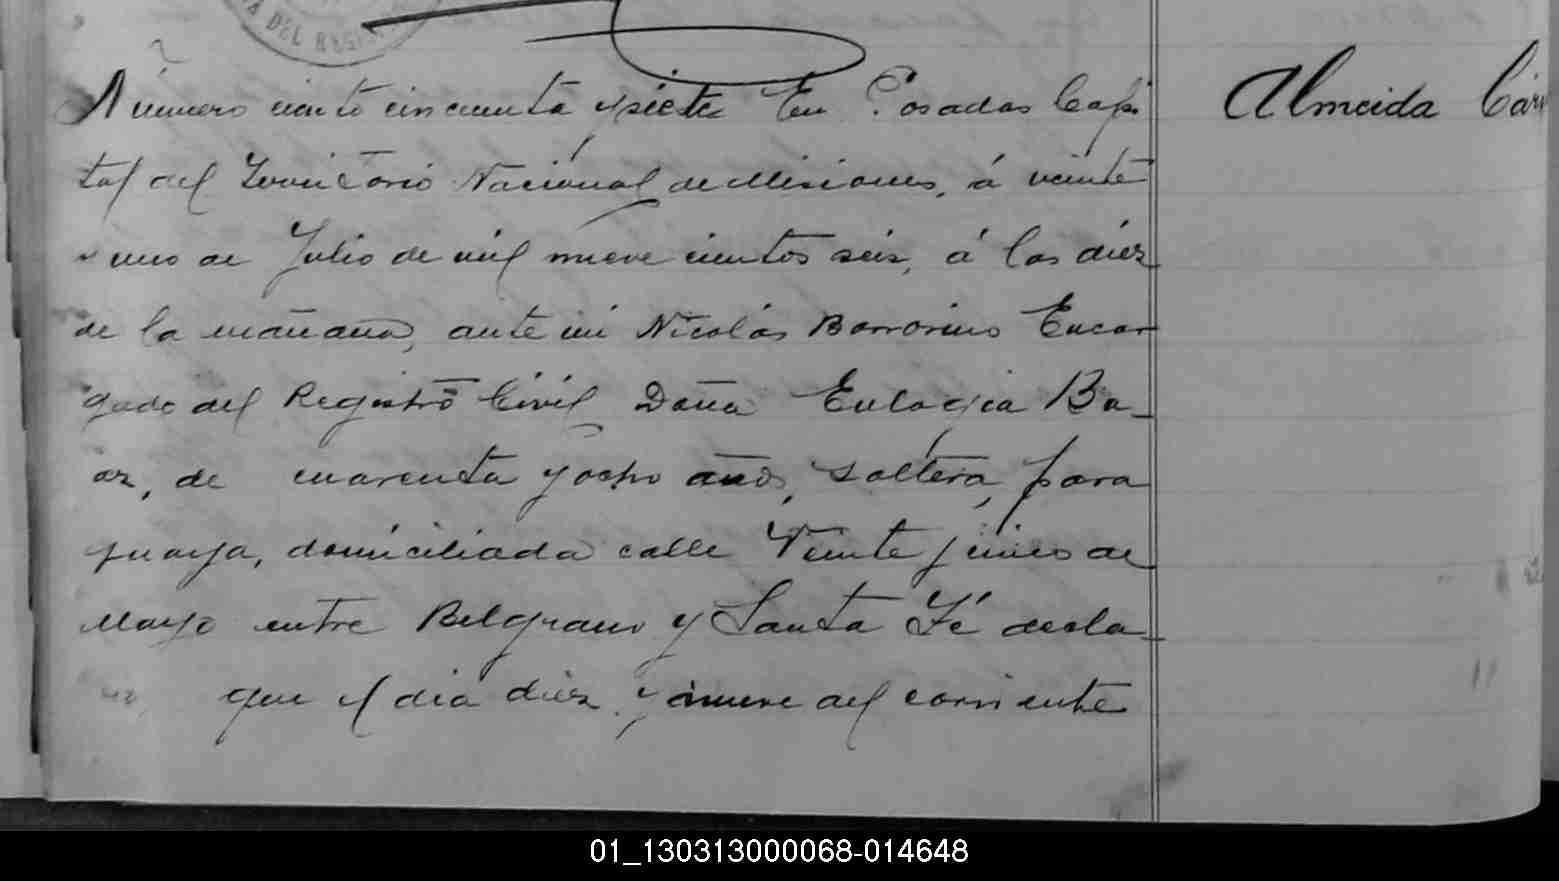 A DEL REGIS
Almeida Car
Número ciento cincuenta y siete En Posadas Capi
tal del Territorio Nacional de Misiones, á veinte
uno de Julio de mil nueve cientos seis, á las diez
de la mañana, ante mi Nicolás Borrorino Encar
gado del Registro Civil Doña Eulogia Ba_
ez, de cuarenta y ocho años, soltera, para
guaya, domiciliada calle Veinte y cinco de
Mayo entre Belgrano y Santa Fé decla_
que el dia diez y nueve del corriente
01_130313000068-014648